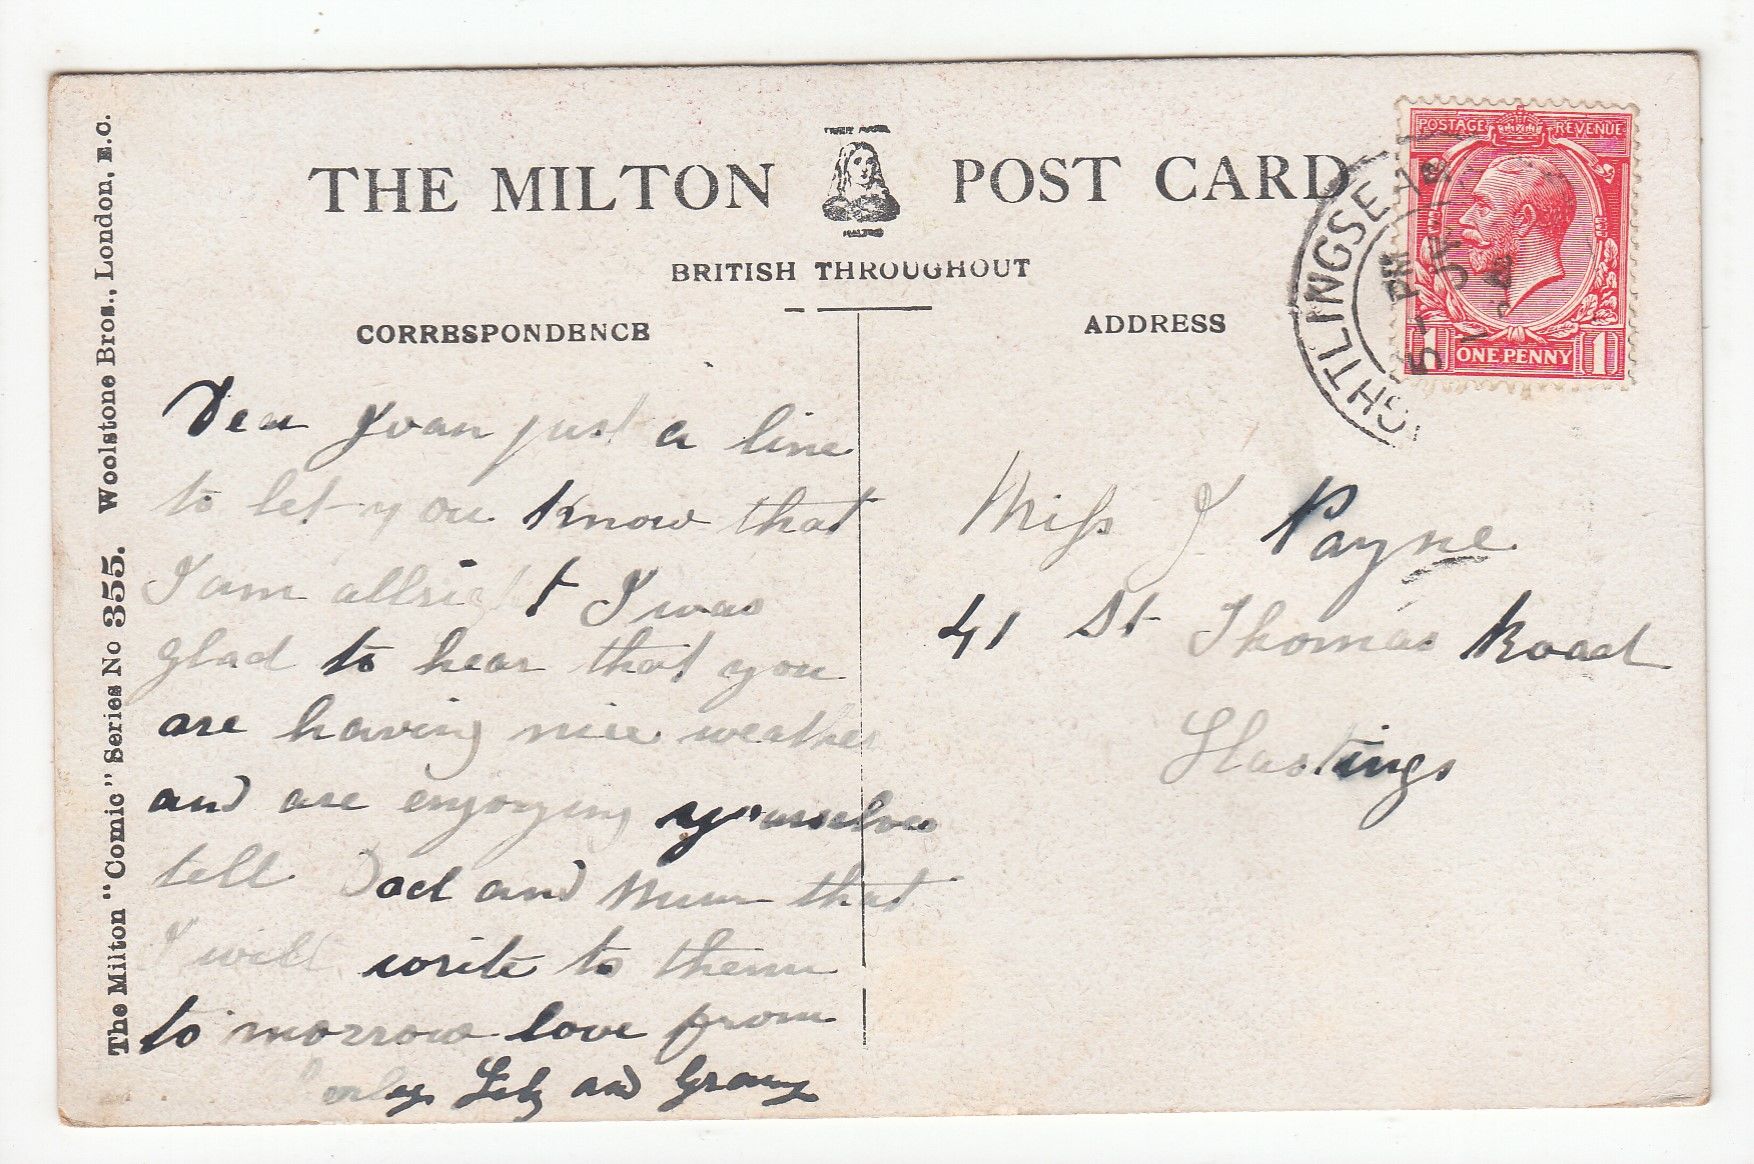 THE MILTON POST CARD
BRITISH THROUGHOUT
CORRESPONDENCE
ADDRESS
POSTAGE REVENUE
1 ONE PENNY 1
GHTLINGSE
5 - PM
The Milton "Comic" Series No 355. Woolstone Bros., London, E.C.
Dear Joan just a line
to let you know that
I am allright I was
glad to hear that you
are having nice weather
and are enjoying yourselves
tell Dad and Mum that
I will write to them
to morrow love from
and Granny
Miss J Payne
41 St Thomas Road
Hastings